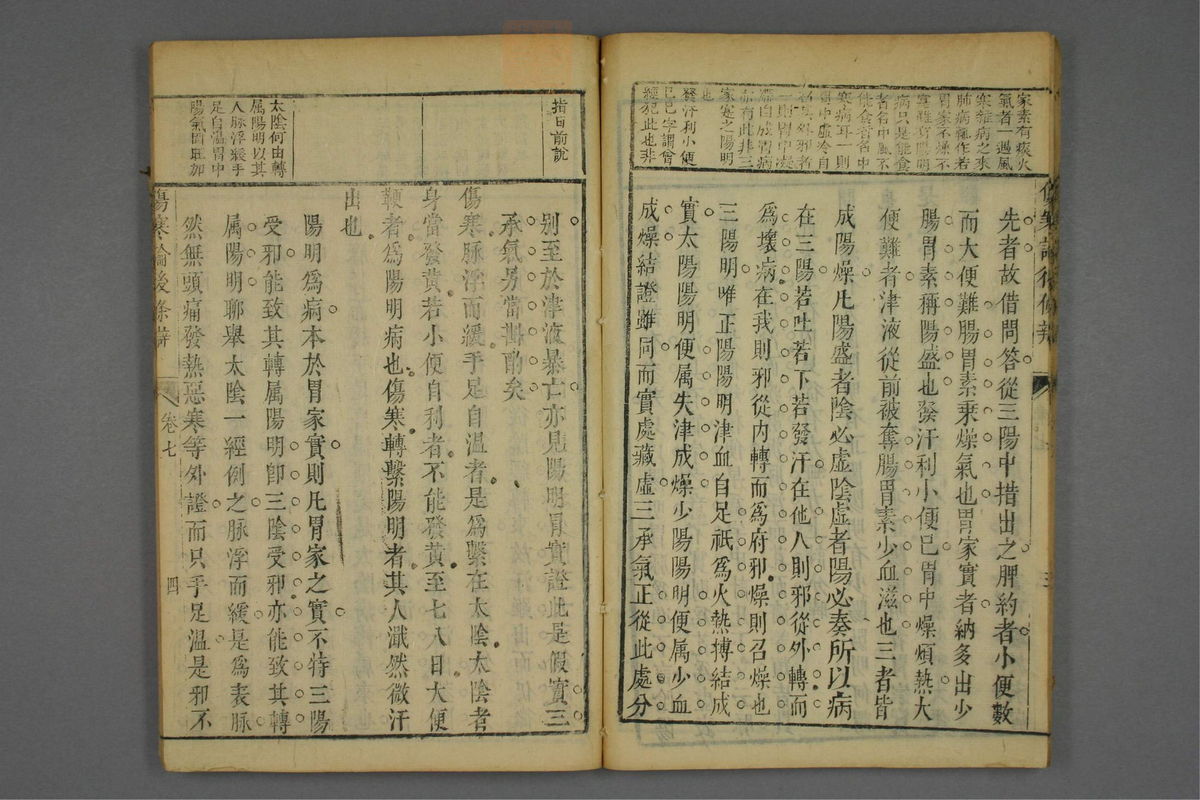 家素有痰火
氣者一遇風
寒雜病之來
肺病輒作若
胃家不燥不
實雖有陽明
病只是能食
者名中風不
能食者名中
寒病耳一則
胃中虛冷自
一則胃中
滯自成胃病
亦有此非三
家寔之陽明
也
發汗利小便
已已字謂曾
經犯此也非
先者故借問答從三陽中措出之脾約者小便數
而大便難腸胃素乘燥氣也胃家實者納多出少
腸胃素稱陽盛也發汗利小便已胃中燥煩熱大
便難者津液從前被奪腸胃素少血滋也三者皆
成陽燥凡陽盛者陰必虛陰虛者陽必奏所以病
在三陽若吐若下若發汗在他人則邪從外轉而
爲壞病在我則邪從內轉而爲府邪燥則召燥也
三陽明唯正陽陽明津血自足祇爲火熱搏結成
實太陽陽明便属失津成燥少陽陽明便属少血
成燥結證雖同而實處藏虛三承氣正從此處分
指目前說
太陰何由轉
属陽明以其
人脉浮緩手
足自溫胃中
陽氣固旺加
別至於津液暴亡亦見陽明胃實證此是假實三
承氣另當斟酌矣
傷寒脉浮而緩手足自溫者是爲繫在太陰太陰者
身當發黃若小便自利者不能發黃至七八日大便
鞕者爲陽明病也傷寒轉繫陽明者其人濈然微汗
出也
陽明爲病本於胃家實則凡胃家之實不特三陽
受邪能致其轉属陽明卽三陰受邪亦能致其轉
属陽明聊舉太陰一經例之脉浮而緩是爲表脉
然無頭痛發熱惡寒等外證而只手足溫是邪不
傷寒論後條辨
卷七
四